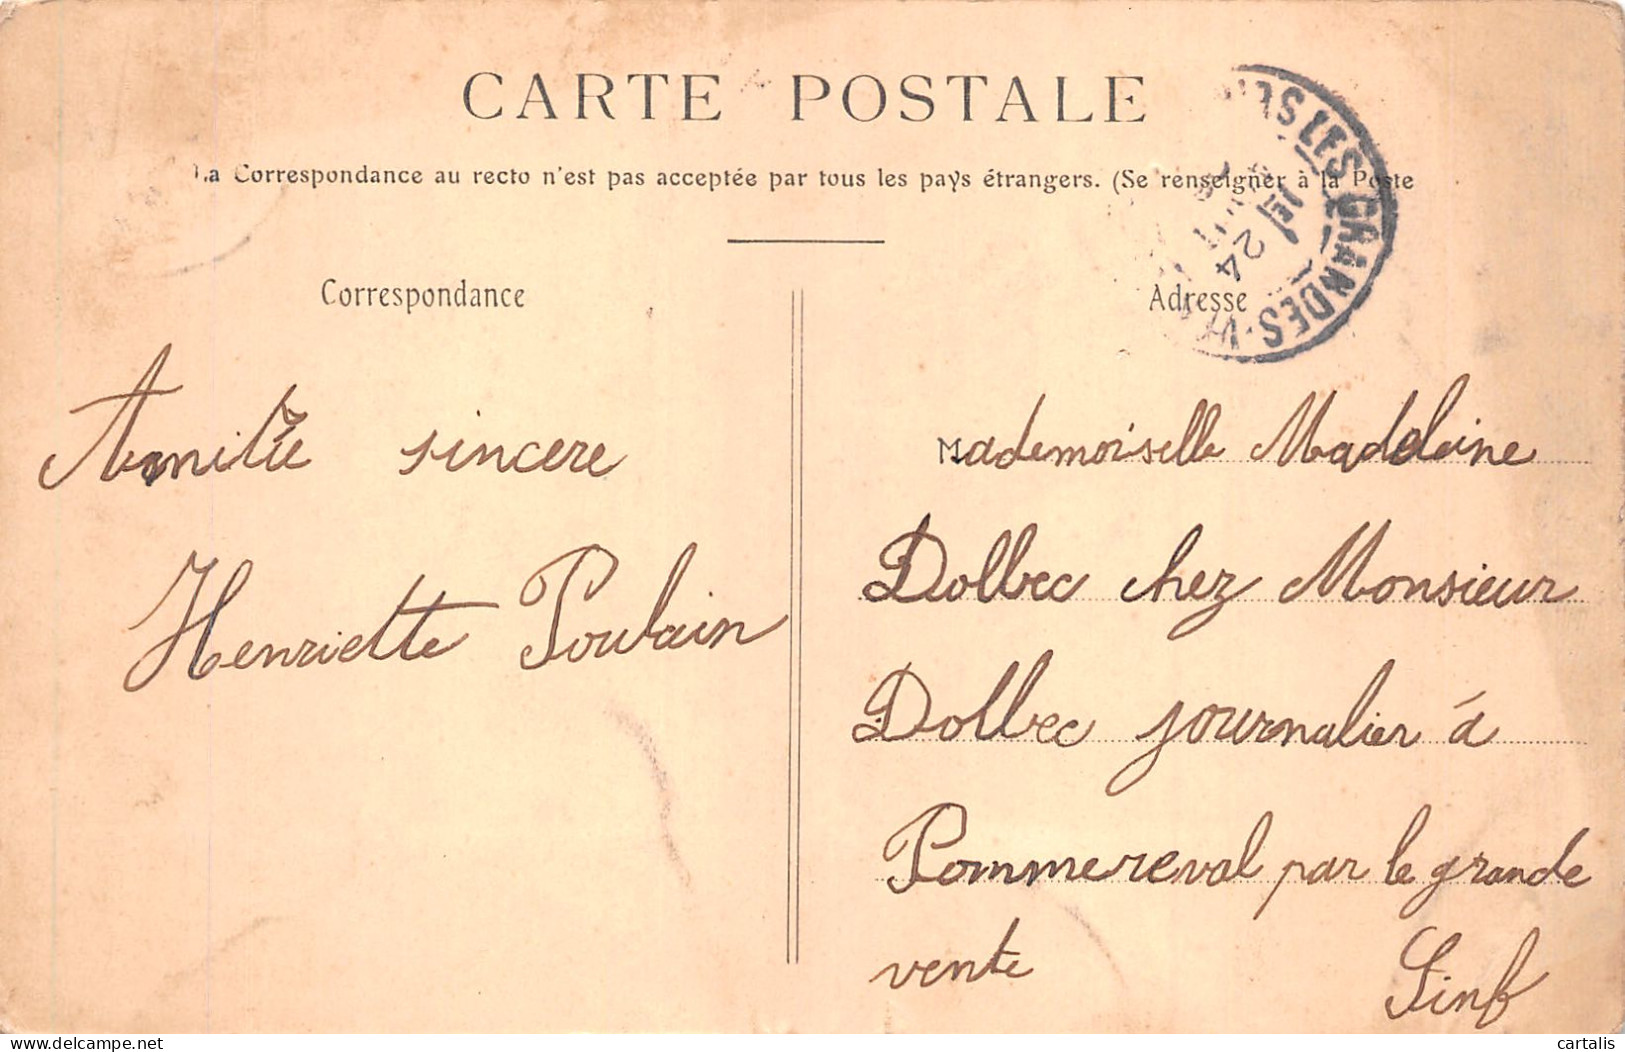 CARTE POSTALE
La Correspondance au recto n'est pas acceptée par tous les pays étrangers. (Se renseigner à la Poste
Correspondance
Amitiée sincere
Henriette Poulain
Adresse
LES GRANDES-V
24
Mademoiselle Madeleine
Dolbec chez Monsieur
Dolbec journalier á
Pommereval par le grande
vente Sinf
www.delcampe.net
cartalis